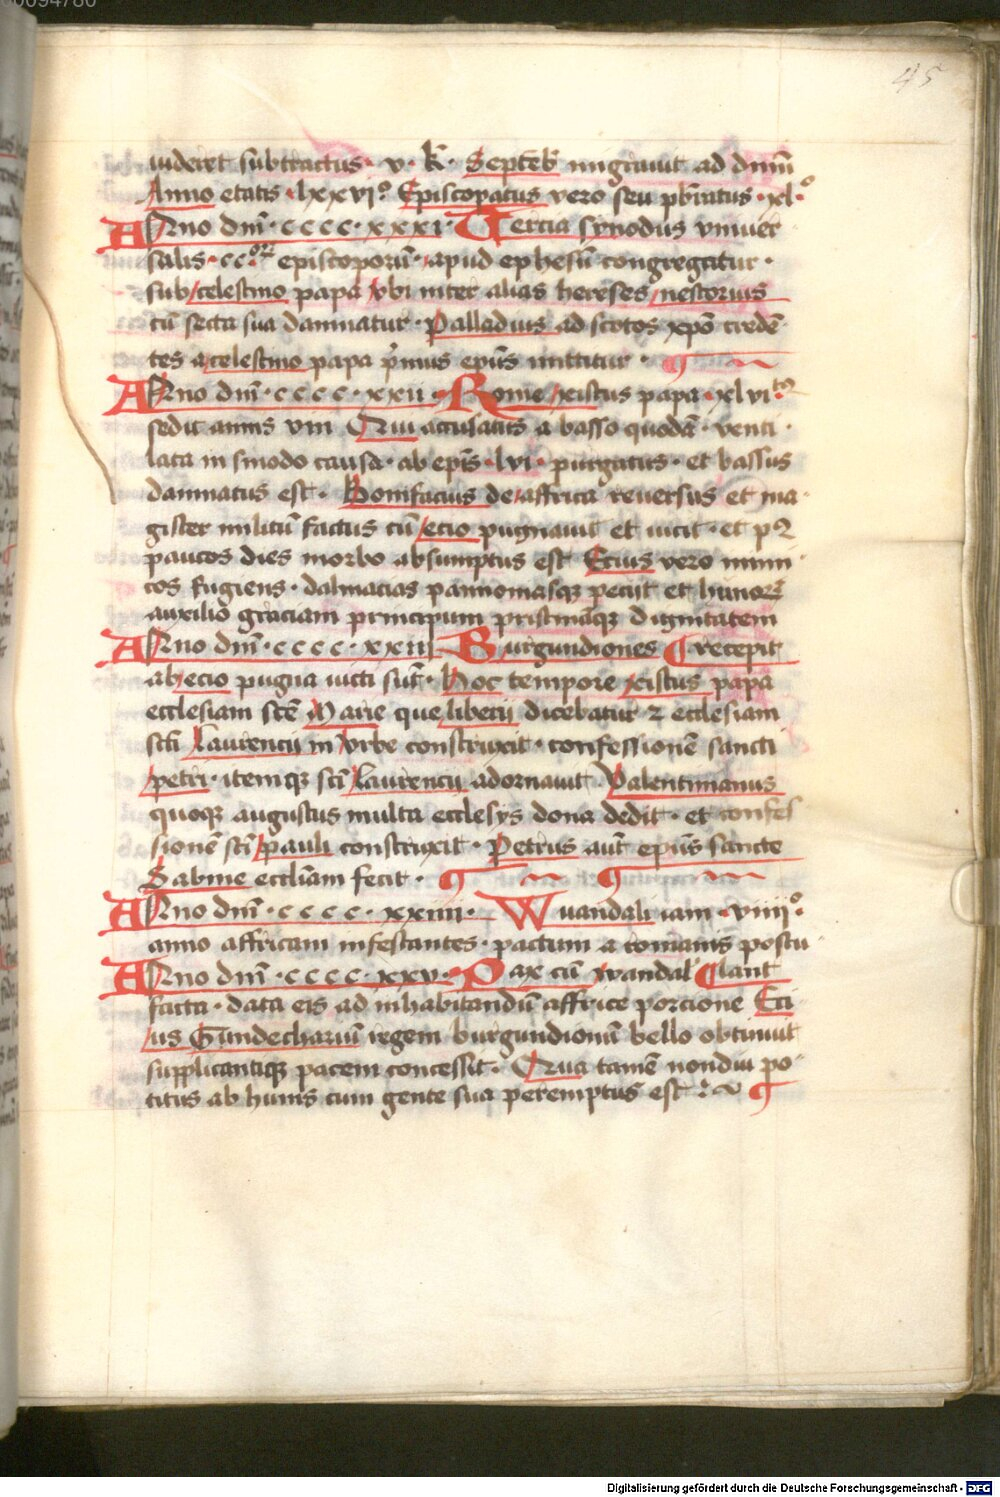 45
uideret subtractus · v · k̄ · Septēb migrauit ad dnm̄
Anno etatis · lxxvi° Episcopatus vero seu pbr̄atus · xl°·
ANno dnī · c c c c · xxxi · Tercia synodus vniuer
salis · cc°ꝝ episcoporū · apud ephesū congregatur ·
sub celestino papa vbi inter alias hereses nestorius
cū secta sua damnatur · Palladius ad scotos xpō credē
tes a celestino papa p̄mus ep̄us mittitur · ¶
ANno dnī · c c c c · xxii · Rome xistus papa · xlvi
sedit annis viii Qui accusatus a basso quodā · venti ·
lata in sinodo causa · ab ep̄is · lvi · purgatus · et bassus
damnatus est · Bonifacius de affrica reuersus et ma ·
gister militū factus cū ecio pugnauit et uicit · et p9
paucos dies morbo absumptus est Ecius vero inimi ·
cos fugiens · dalmacias pannoniasqꝫ peciit et hunoꝝ
auxilio graciam principum pristināqꝫ dignitatem
ANno dnī · c c c c · xxiii Burgundiones ¶ recepit
ab ecio pugna uicti sūt · Hoc tempore xistus papa
ecclesiam scē Marie que liberii dicebatur ⁊ ecclesiam
scī Laurencii in vrbe construxit · confessionē sancti
petri · itemqꝫ scī Laurencii adornauit · Valentinianus
quoqꝫ augustus multa ecclesys dona dedit · et confes
sionē scī pauli construxit · Petrus aūt ep̄us sancte
Sabine eccliam fecit · ¶ ¶
ANno dnī · c c c c · xxiiii · Wuandali iam · viiii° ·
anno affricam infestantes · pactum a romanis postu
ANno dnī · c c c c · xxv · Pax cū wandal ¶ lant
facta · data eis ad inhabitandū affrice porcione Eci
us Gundechariū regem burgundionū bello obtinuit
supplicantiqꝫ pacem concessit · Qua tamē nondiu po
titus ab hunis cum gente sua peremptus est ¶
Digitalisierung gefördert durch die Deutsche Forschungsgemeinschaft - DFG